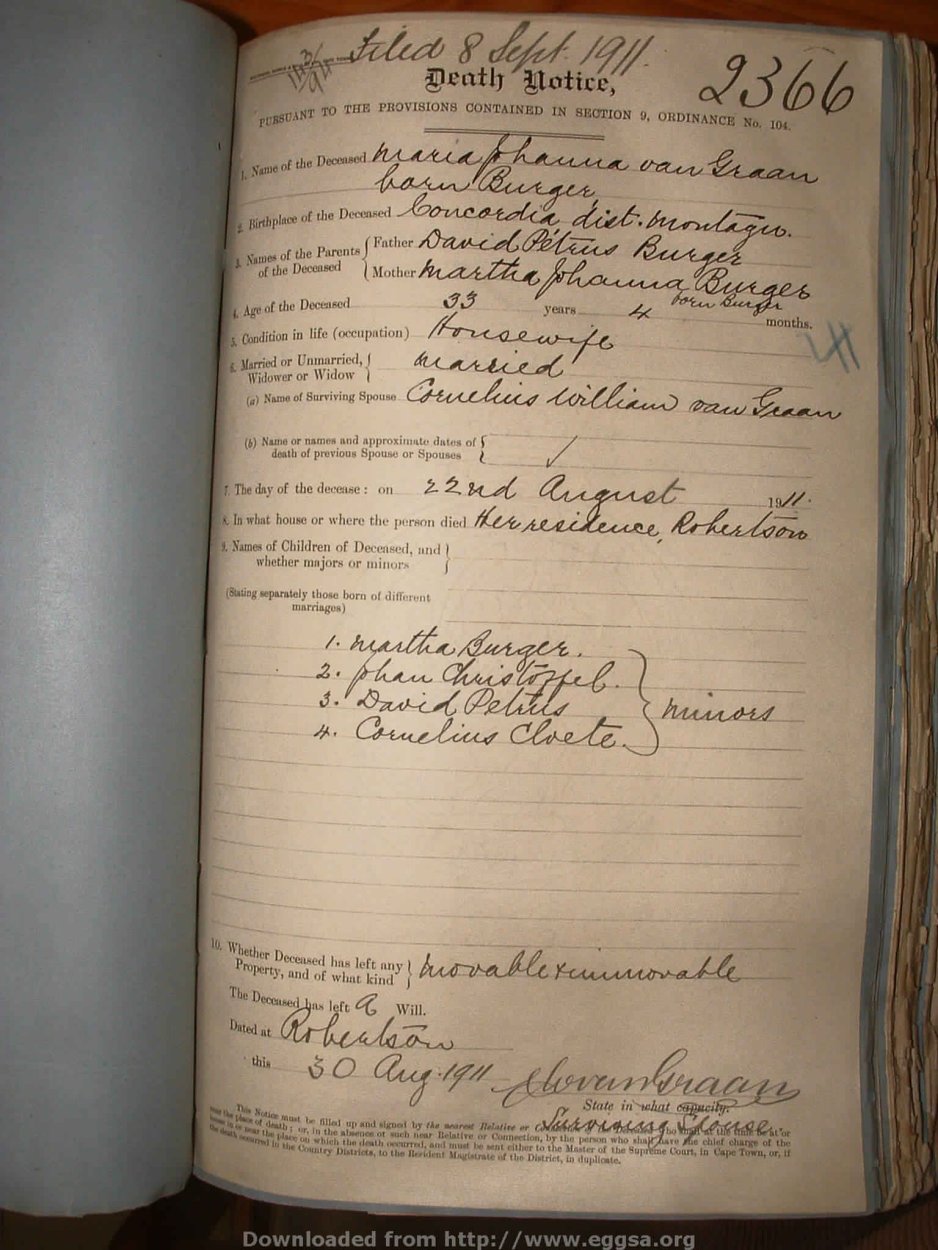 Filed 8 Sept. 1911.
Death Notice,
2366
PURSUANT TO THE PROVISIONS CONTAINED IN SECTION 9, ORDINANCE No. 104.
1. Name of the Deceased Maria Johanna van Graan
born Burger
2. Birthplace of the Deceased Concordia dist. Montagu.
3. Names of the Parents of the Deceased { Father David Petrus Burger
Mother Martha Johanna Burger
born Burger
4. Age of the Deceased 33 years 4 months.
5. Condition in life (occupation) Housewife
6. Married or Unmarried, Widower or Widow } Married
(a) Name of Surviving Spouse Cornelius William van Graan
(b) Name or names and approximate dates of
death of previous Spouse or Spouses {
7. The day of the decease: on 22nd August 1911.
8. In what house or where the person died Her residence, Robertson
9. Names of Children of Deceased, and
whether majors or minors }
(Stating separately those born of different
marriages)
1. Martha Burger.
2. Johan Christoffel.
3. David Petrus } minors
4. Cornelius Cloete.
10. Whether Deceased has left any
Property, and of what kind } Movable & immovable
The Deceased has left a Will.
Dated at Robertson
this 30 Aug. 1911 van Graan
State in what capacity.
Surviving Spouse.
This Notice must be filled up and signed by the nearest Relative or at or
near the place of death; or, in the absence of such near Relative or Connection, by the person who shall have the chief charge of the
house in or near the place on which the death occurred, and must be sent either to the Master of the Supreme Court, in Cape Town, or, if
the death occurred in the Country Districts, to the Resident Magistrate of the District, in duplicate.
Downloaded from http://www.eggsa.org